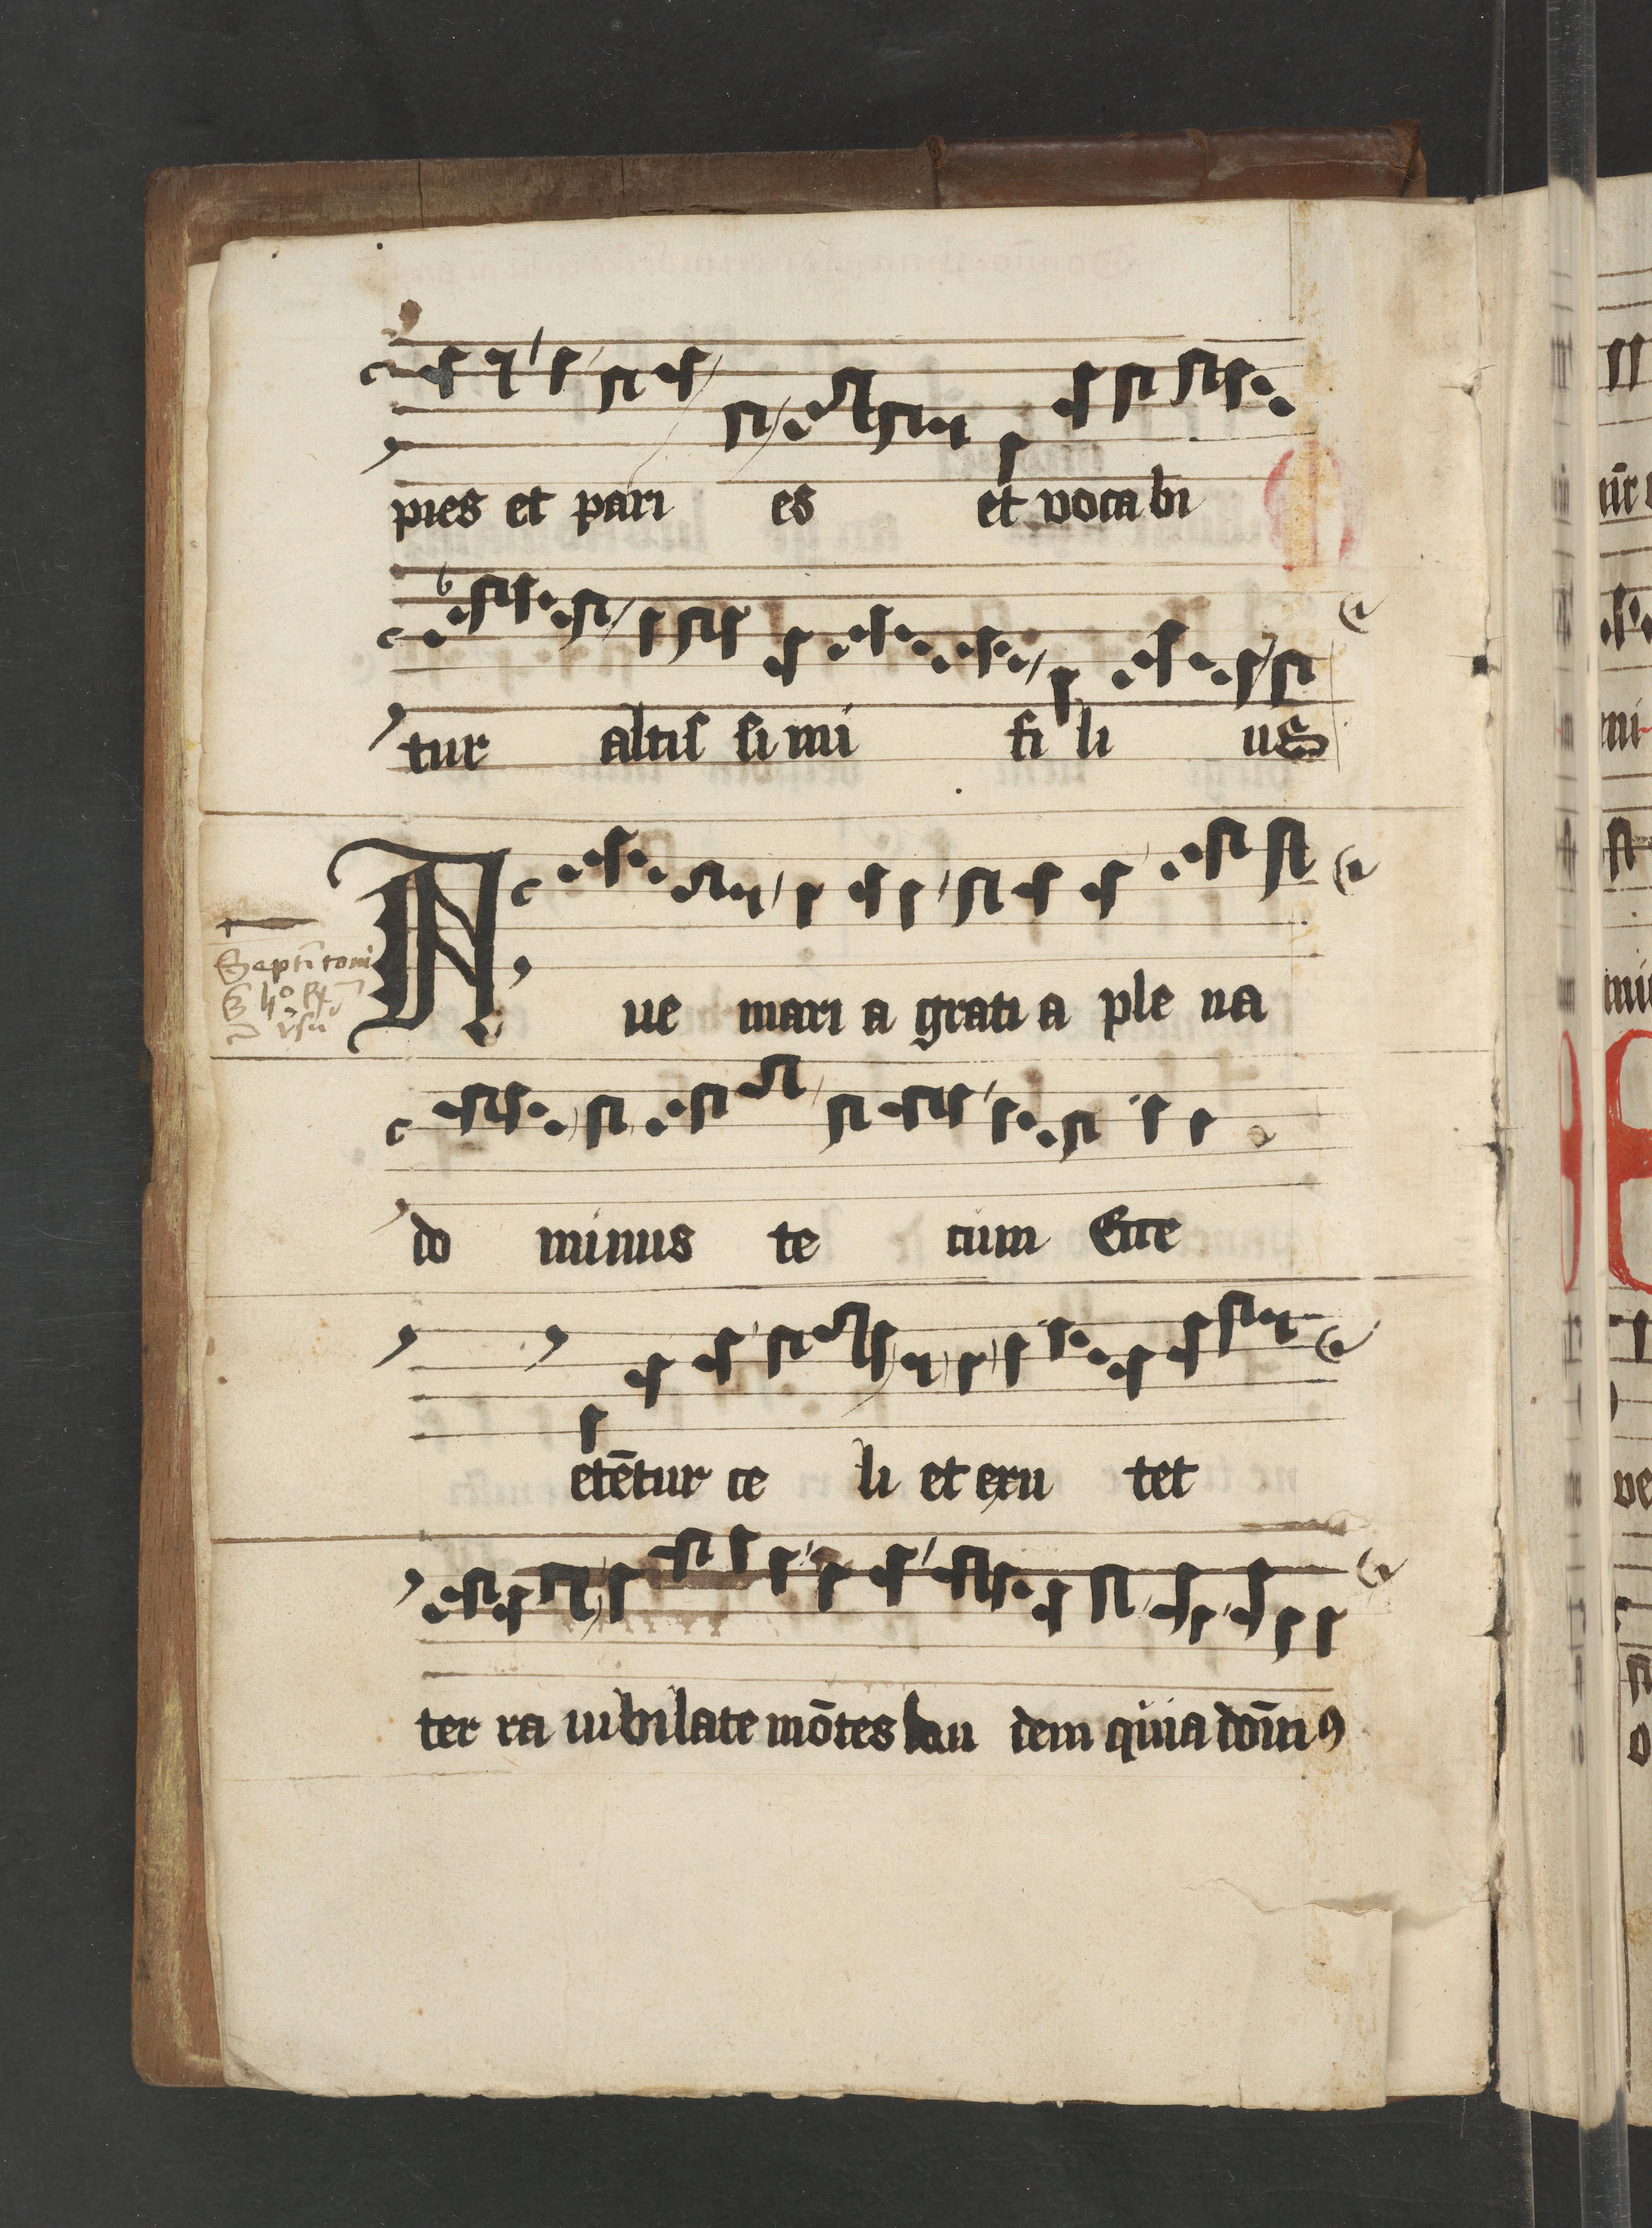 pies et pari es et vocabi
tur altis simi fi li us
A ue mari a grati a ple na
Septi toni
do minus te cum Ecce
etētur ce li et exu tet
ter ra iubilate mōtes lau dem quia domī9